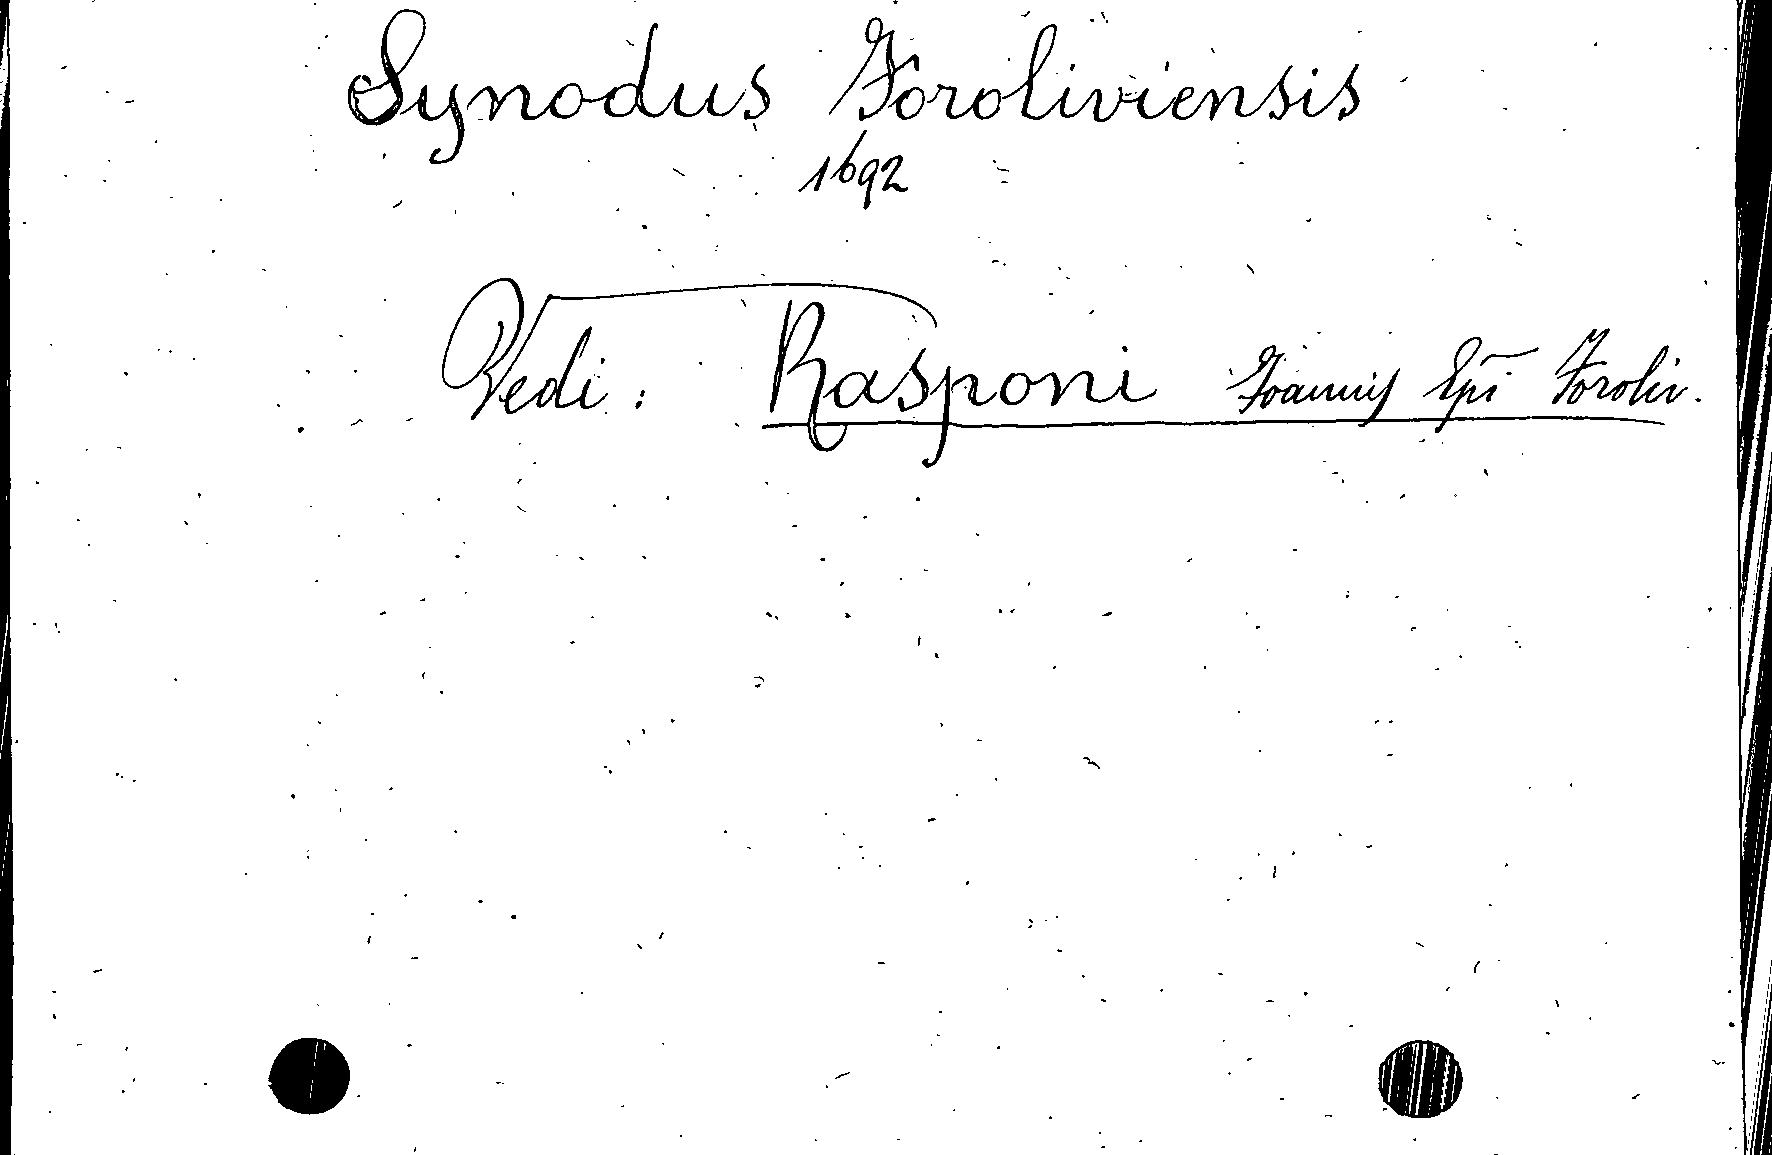 Synodus Foroliviensis
1692
Vedi: Rasponi Joannis Epī Foroliv.